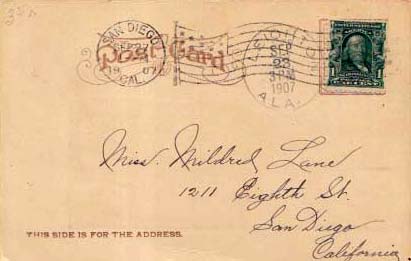 SAN DIEGO
CAL.
Post Card
SEP
23
3 PM
1907
ALA.
1 1
Miss. Mildred Lane
1211 Eighth St.
San Diego
California
THIS SIDE IS FOR THE ADDRESS.